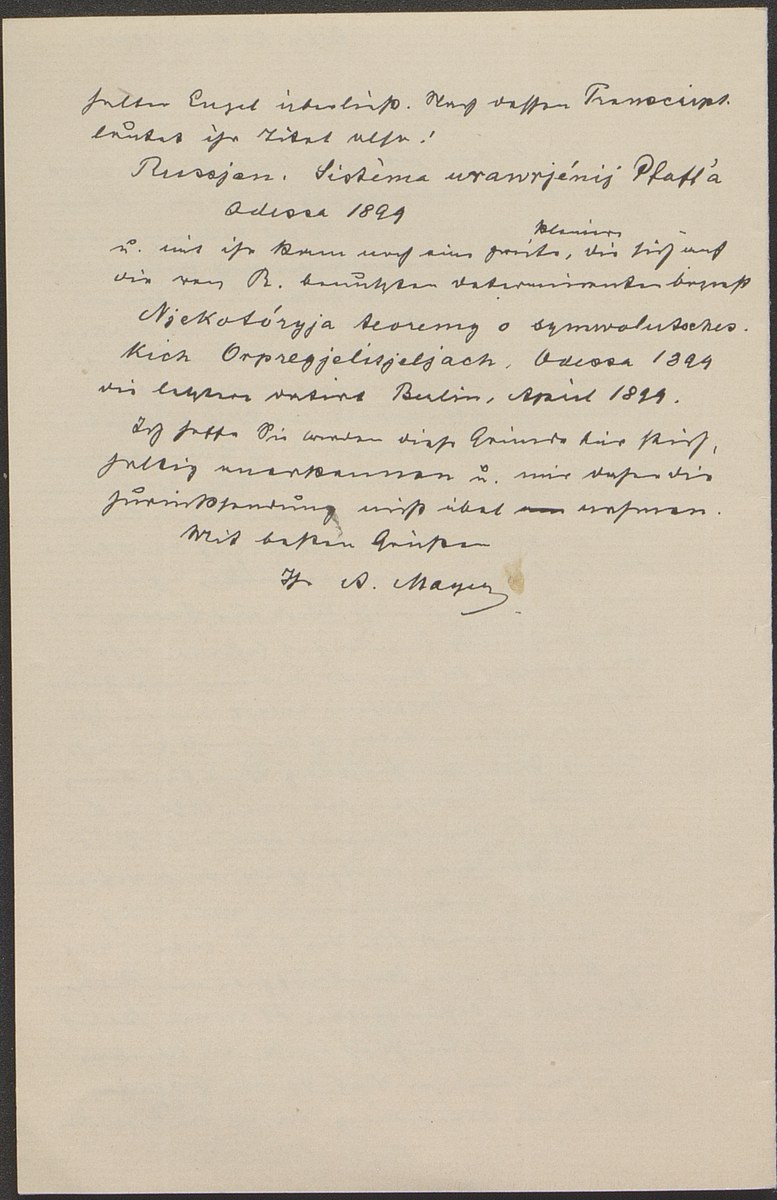 halber Engel überließ. Nach dessen Transcript.
lautet ihr Titel also:
Russjan. Sistéma urawnjénij Pfaff'a
Odessa 1899
kleinere
u. mit ihr kam noch eine zweite, die sich auf
die von R. benutzten Determinanten bezieht
Njekotóryja teoremy o symwolitsches.
kich Orpregjelitjeljach, Odessa 1899
die letztere datirt Berlin, April 1899.
Ich hoffe Sie werden diese Gründe für
anerkennen u. mir daher die
Zurücksendung nicht übel nehmen.
Mit besten Grüßen
Ihr A. Mayer